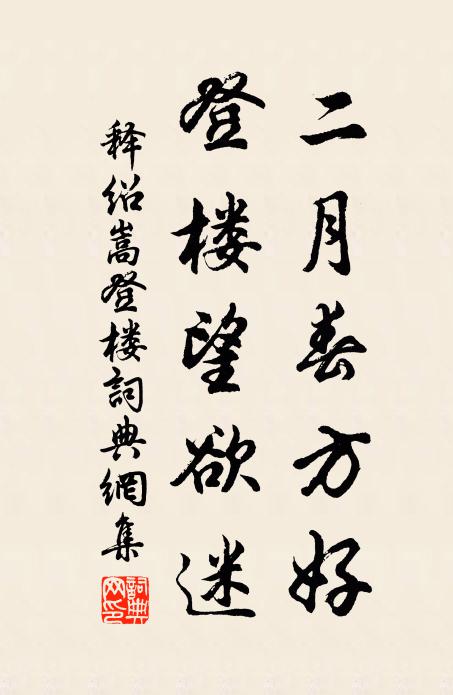 二月春方好
登楼望欲迷
释绍嵩登楼詞典網集
詞典网印